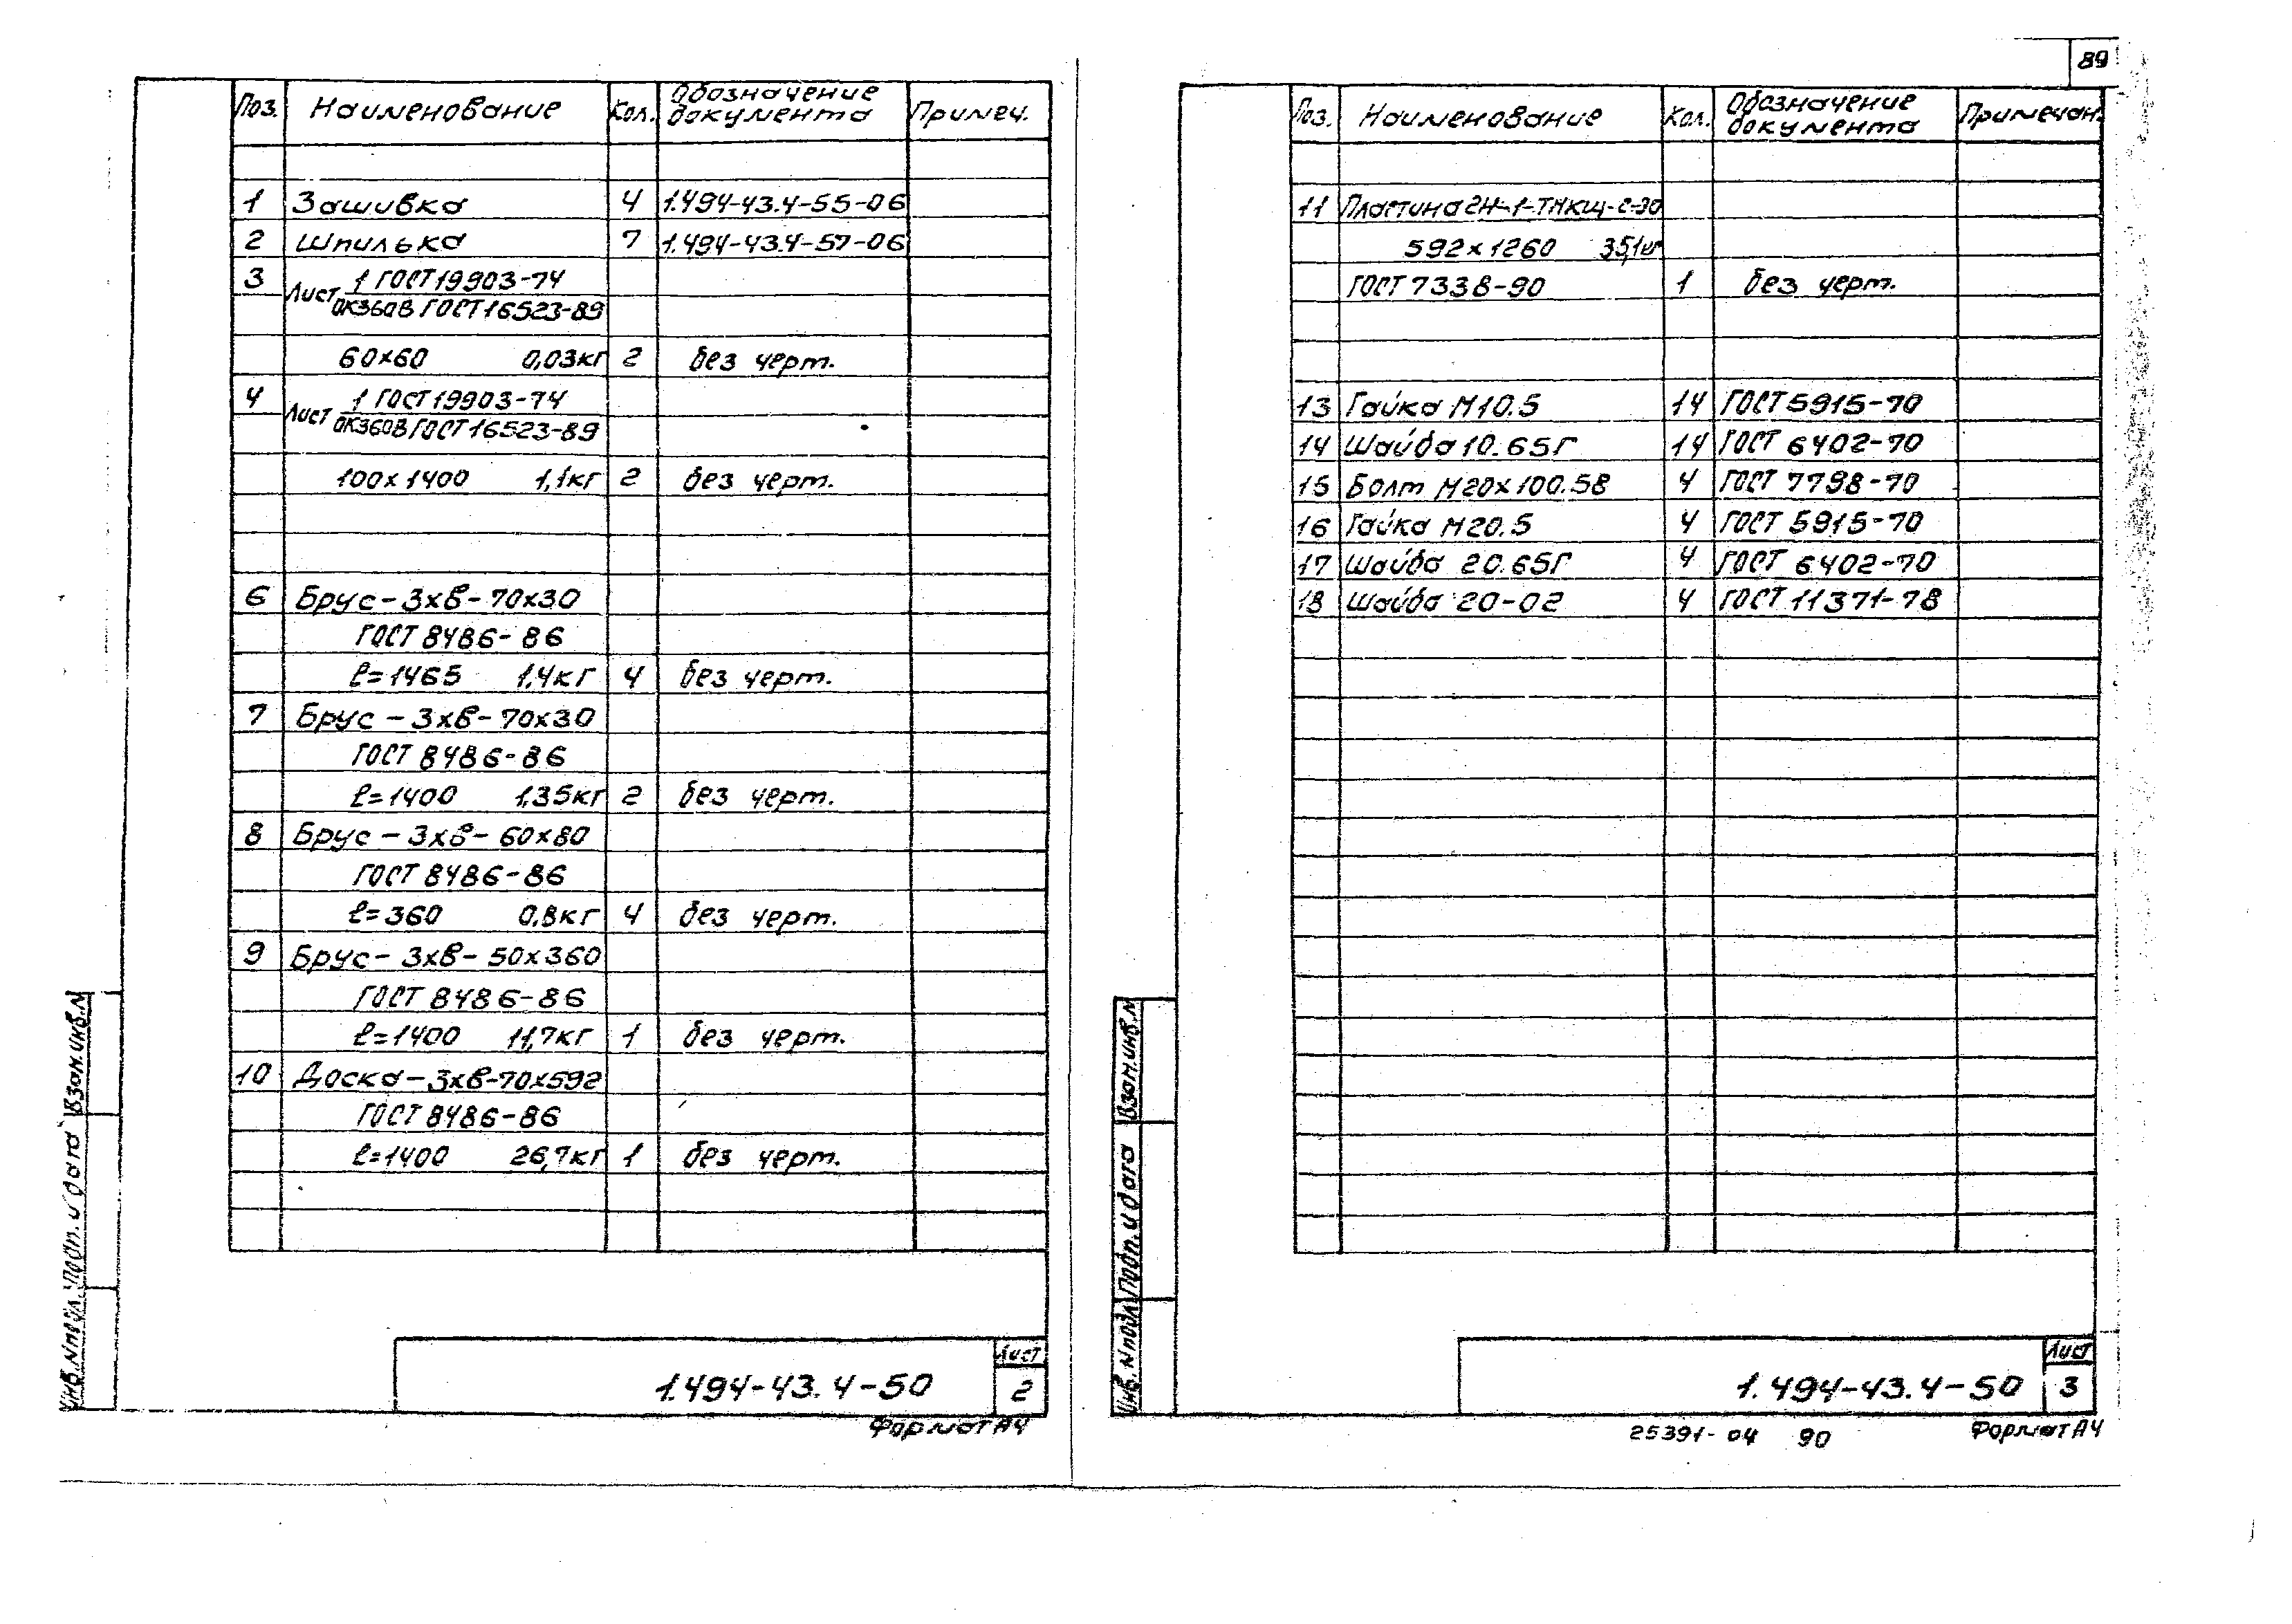 Поз. Наименование Кол. Обозначение документа Примеч.
1 Зашивка 4 1.494-43.4-55-06
2 Шпилька 7 1.494-43.4-57-06
3 Лист 1 ГОСТ 19903-74
ОК360В ГОСТ 16523-89
60х60 0,03кг 2 без черт.
4 Лист 1 ГОСТ 19903-74
ОК360В ГОСТ 16523-89
100х1400 1,1кг 2 без черт.
6 Брус-3хв-70х30
ГОСТ 8486-86
ℓ=1465 1,4кг 4 без черт.
7 Брус-3хв-70х30
ГОСТ 8486-86
ℓ=1400 1,35кг 2 без черт.
8 Брус-3хв-60х80
ГОСТ 8486-86
ℓ=360 0,8кг 4 без черт.
9 Брус-3хв-50х360
ГОСТ 8486-86
ℓ=1400 11,7кг 1 без черт.
10 Доска-3хв-70х592
ГОСТ 8486-86
ℓ=1400 26,7кг 1 без черт.
Инв.N подл. Подп. и дата Взам.инв.N
1.494-43.4-50
Лист
2
Формат А4
89
Поз. Наименование Кол. Обозначение документа Примечан.
11 Пластина 2Н-1-ТМКЩ-С-30
592х1260 35,1кг
ГОСТ 7338-90 1 без черт.
13 Гайка М10.5 14 ГОСТ 5915-70
14 Шайба 10.65Г 14 ГОСТ 6402-70
15 Болт М20х100.58 4 ГОСТ 7798-70
16 Гайка М20.5 4 ГОСТ 5915-70
17 Шайба 20.65Г 4 ГОСТ 6402-70
18 Шайба 20-02 4 ГОСТ 11371-78
Инв.N подл. Подп. и дата Взам.инв.N
1.494-43.4-50
Лист
3
25391-04 90 Формат А4